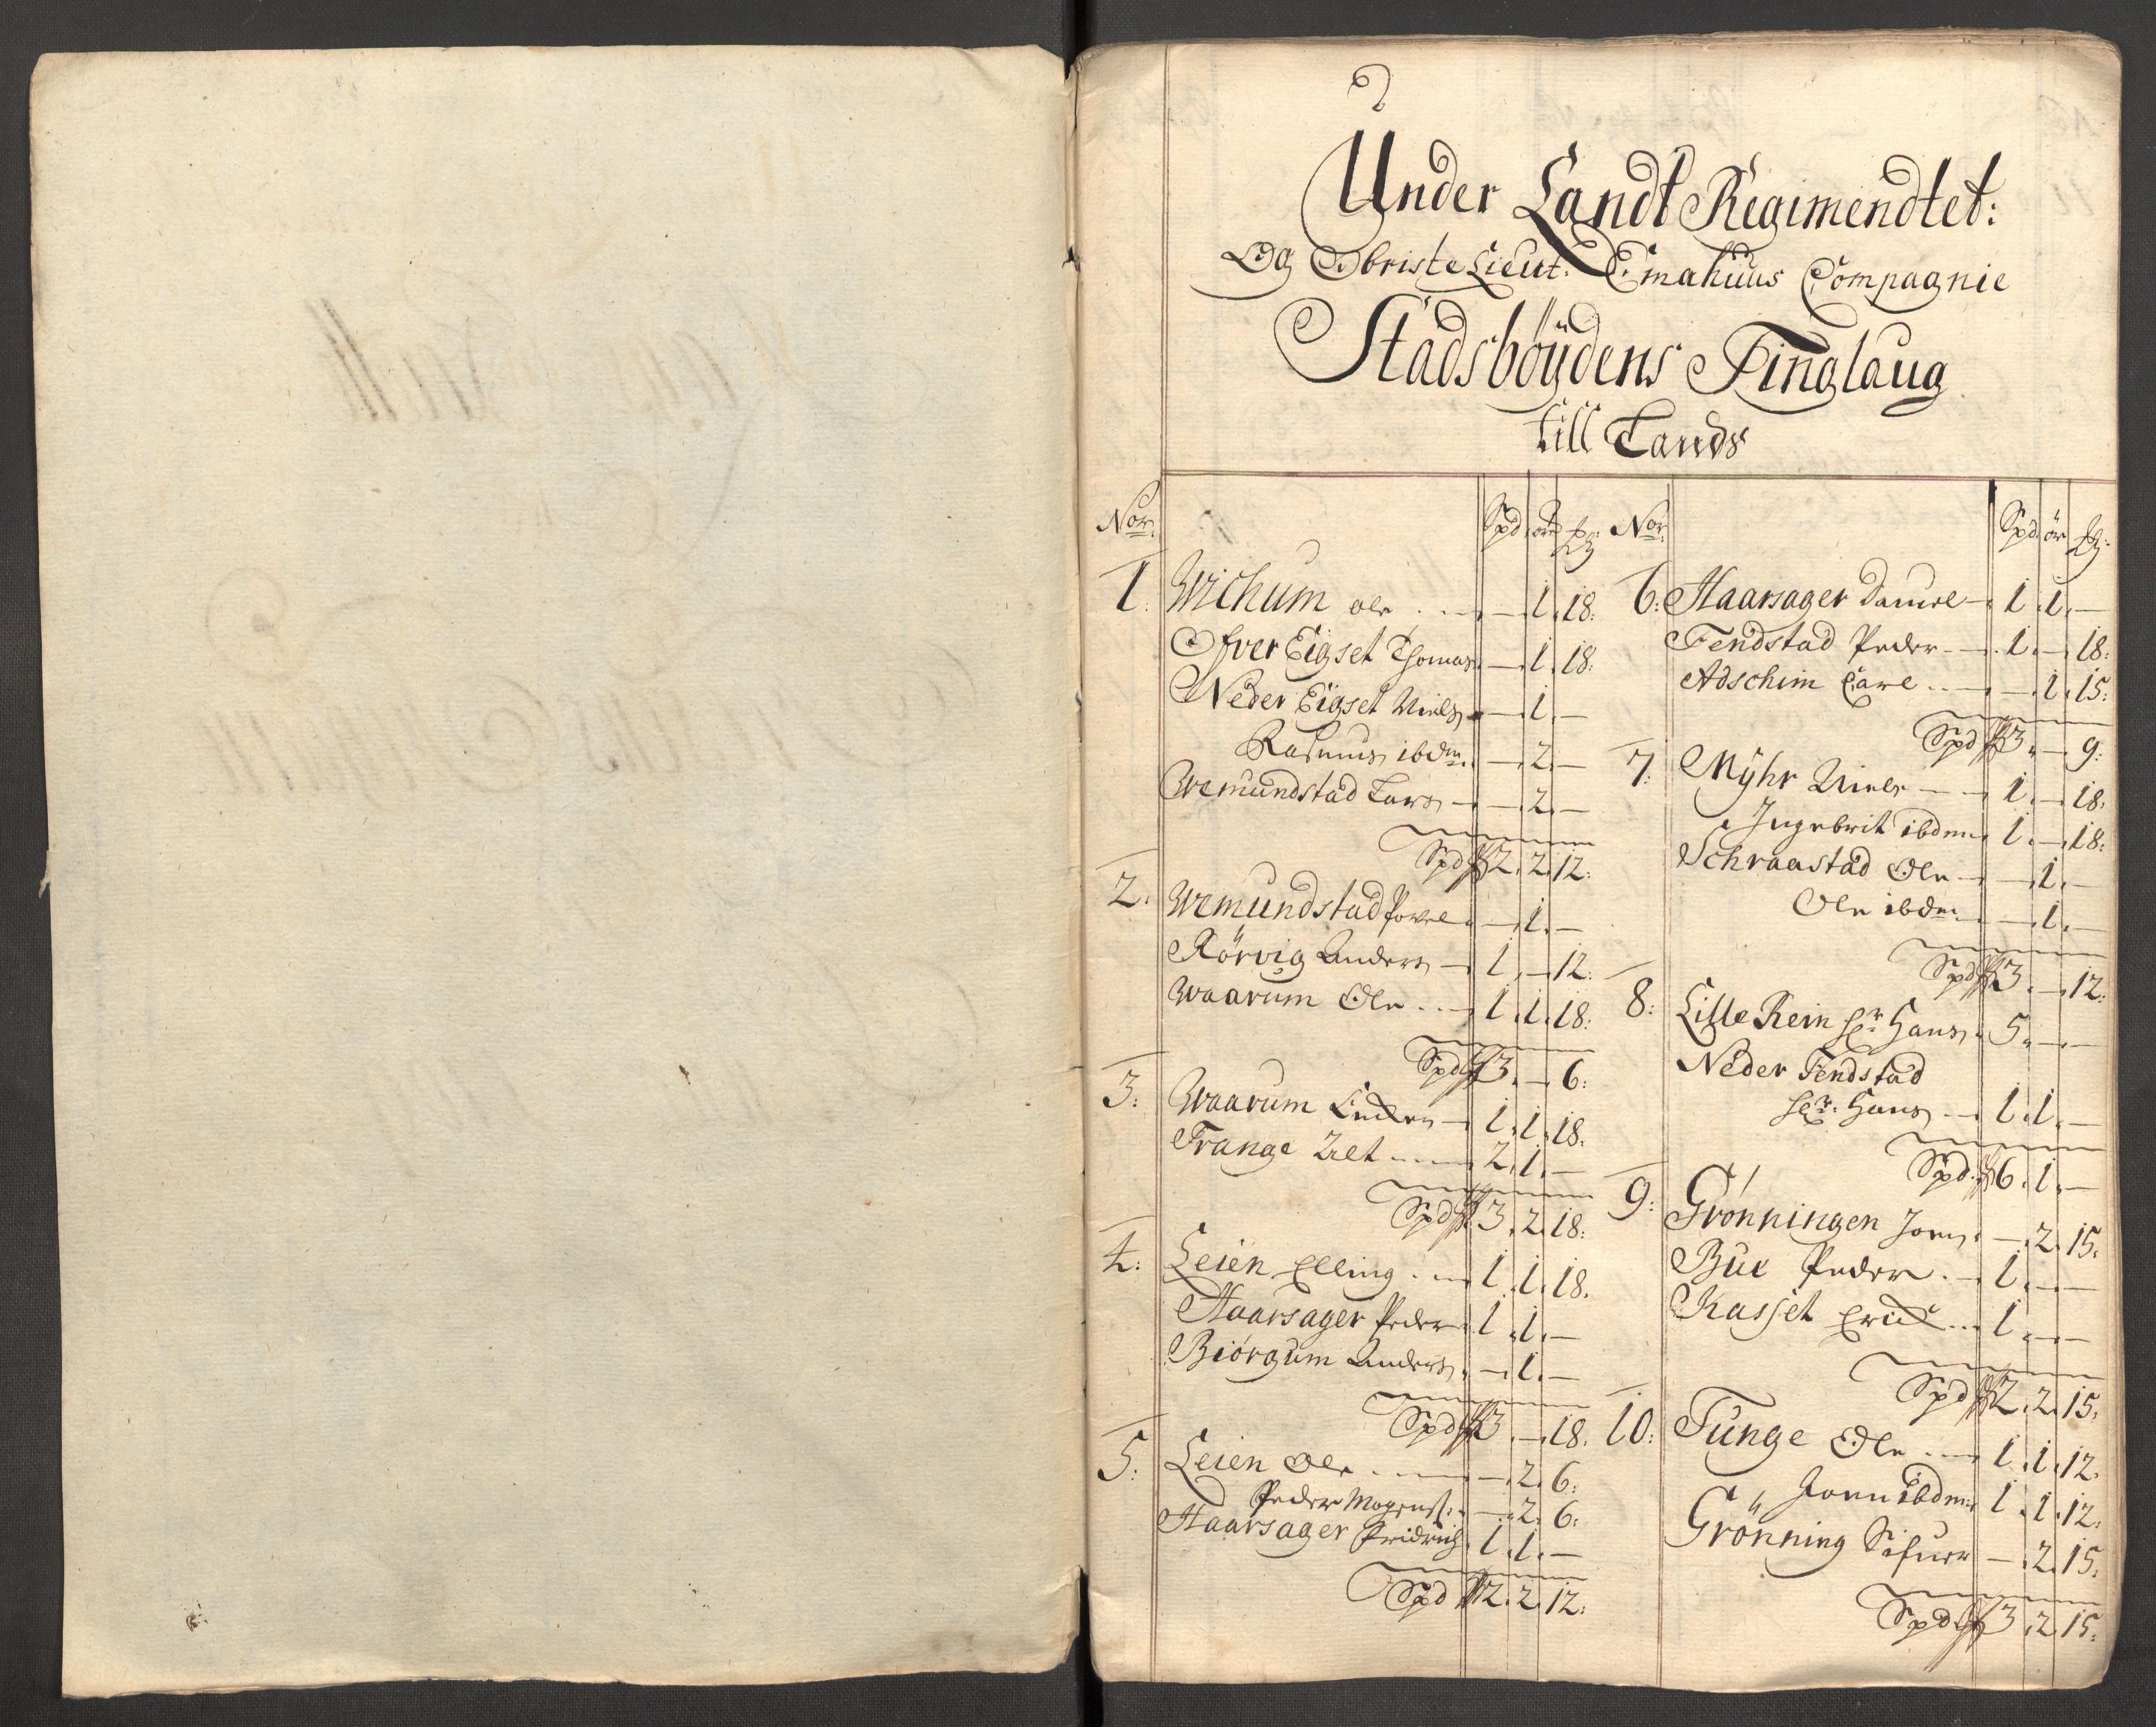 Under Landt Regimendtet:
Og Obriste Lieut: Emahuus Compagnie
Stadsböydens Tinglaug
till Lands
Nor: Spd ör
1. Wichum Ole — 1. 18.
Ofver Eigset Thomas — 1. 18:
Neder Eigset Niels — 1. —
Rasmus ibdm — 2. —
Wemundstad Lars — 2. —
Spd 2. 2. 12:
2. Wemundstad Povel — 1. —
Rörvig Anders 1. — 12:
Waarum Ole 1. 1. 18:
Spd 3. — 6:
3: Waarum 1. 1. 18.
Trange 2. 1. —
Spd 3. 2. 18:
4: Leien Elling 1. 1. 18.
Haarsager Peder 1. 1. —
Biörgum Anders — 1. —
Spd 3. — 18.
5: Leien Ole — 2. 6:
Peder Mogens: — 2. 6:
Haarsager Fridrich 1. 1. —
Spd 2. 2. 12:
Nor: Spd: ör
6: Haarsager Daniel 1. 1. —
Fendstad Peder 1. — 18:
Adschim Carl — 1. 15:
Spd 3. — 9:
7: Myhr Niels 1. — 18.
Ingebrit ibdm 1. — 18:
Schraastad Ole — 1. —
Ole ibdm — 1. —
Spd 3. — 12:
8: Lille Rein Hr: Hans 5. — —
Neder Fendstad
Hr: Hans 1. 1. —
Spd: 6. 1. —
9: Grönningen Jon — 2. 15:
Bue Peder 1. — —
Kasset Erich 1. — —
Spd 2. 2. 15:
10: Tunge Ole 1. 1. 12.
Jon ibdm: 1. 1. 12:
Grönning Sifuer — 2. 15:
Spd 3. 2. 15: